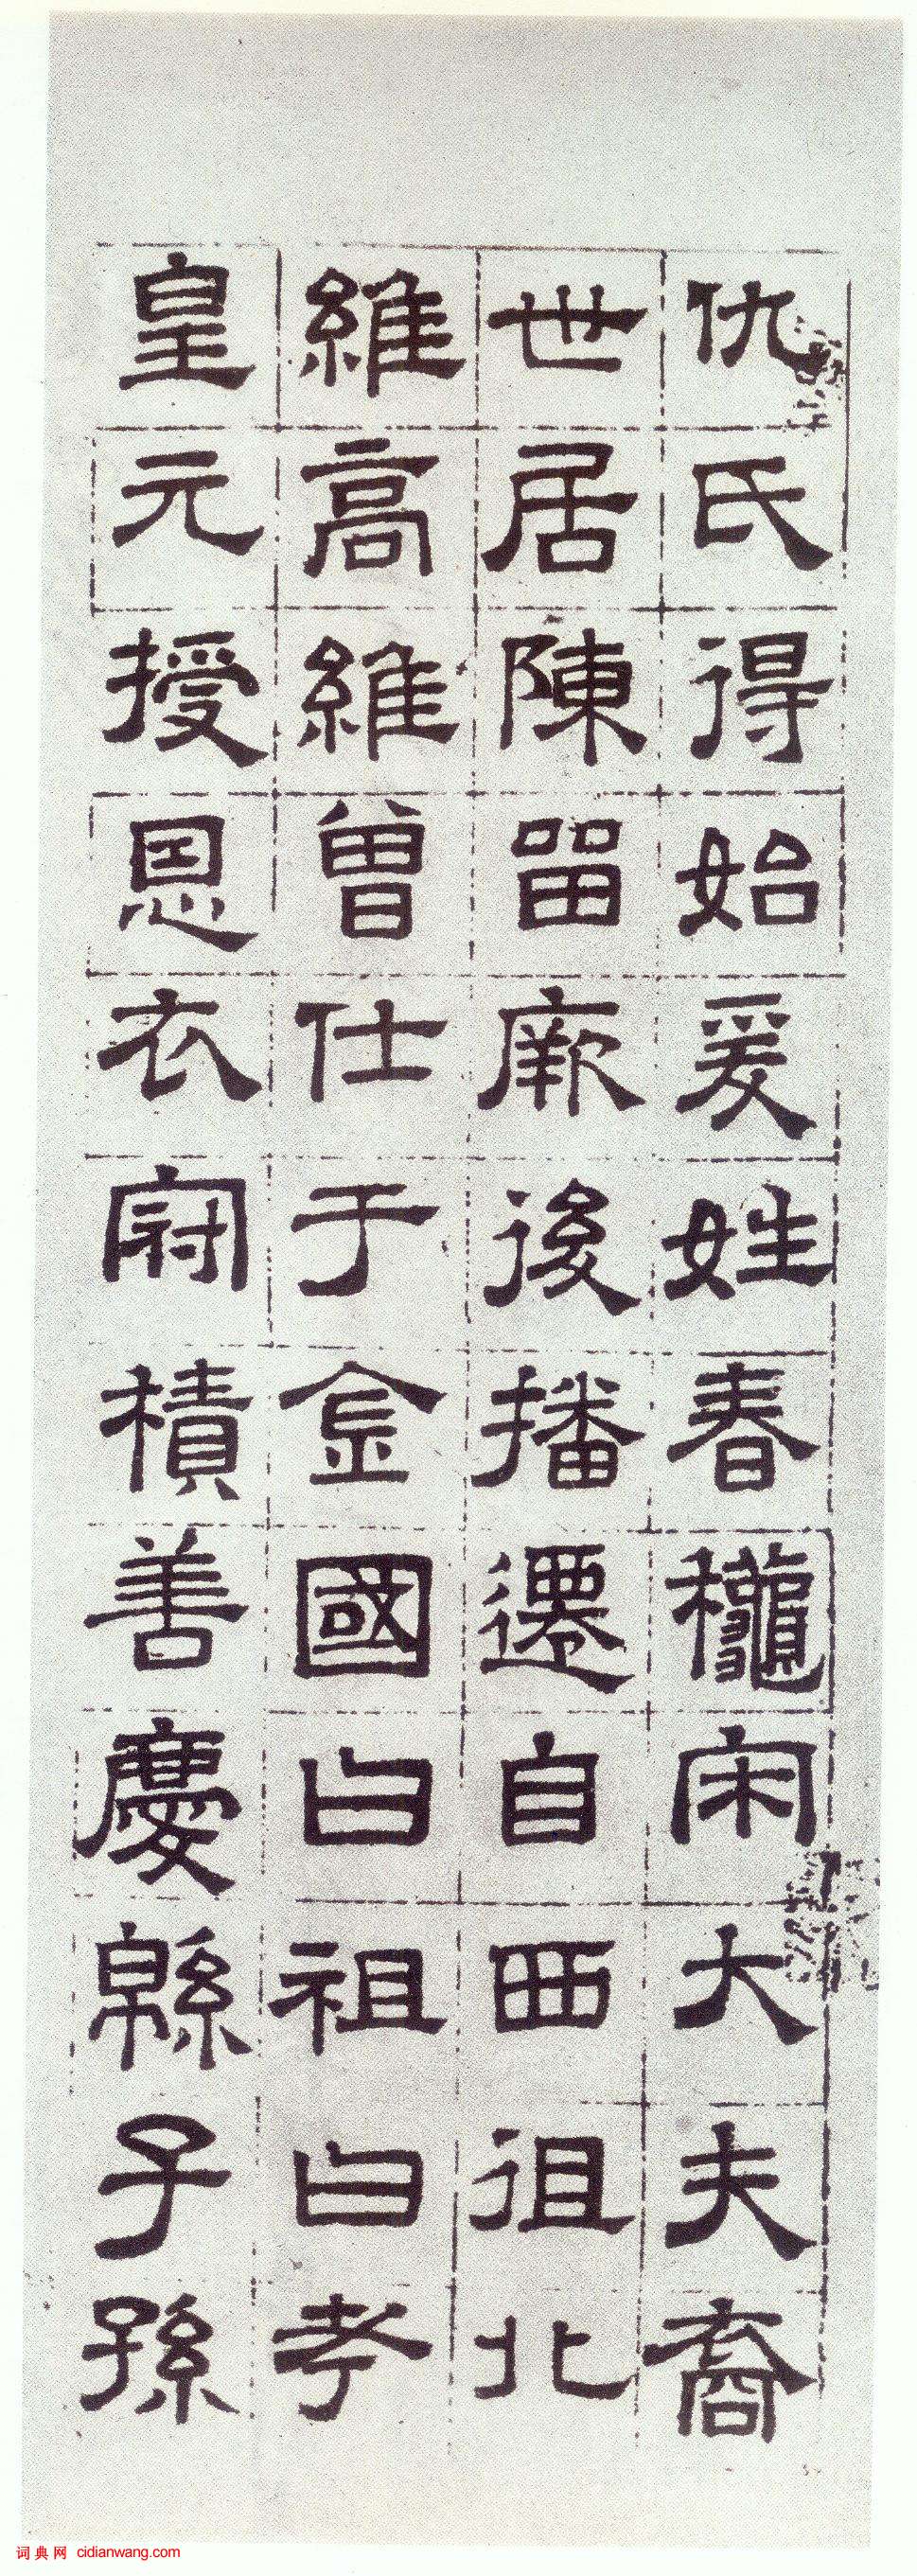 仇氏得始爰姓春龝宋大夫裔
世居陳留厥後播遷自西徂北
維高維曾仕于金國曰祖曰孝
皇元授恩衣冠積善慶緜子孫
词典网 cidianwang.com